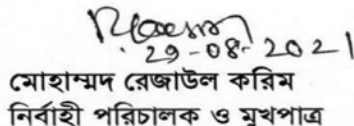 29-08-2021
মোহাম্মদ রেজাউল করিম
নির্বাহী পরিচালক ও মুখপাত্র